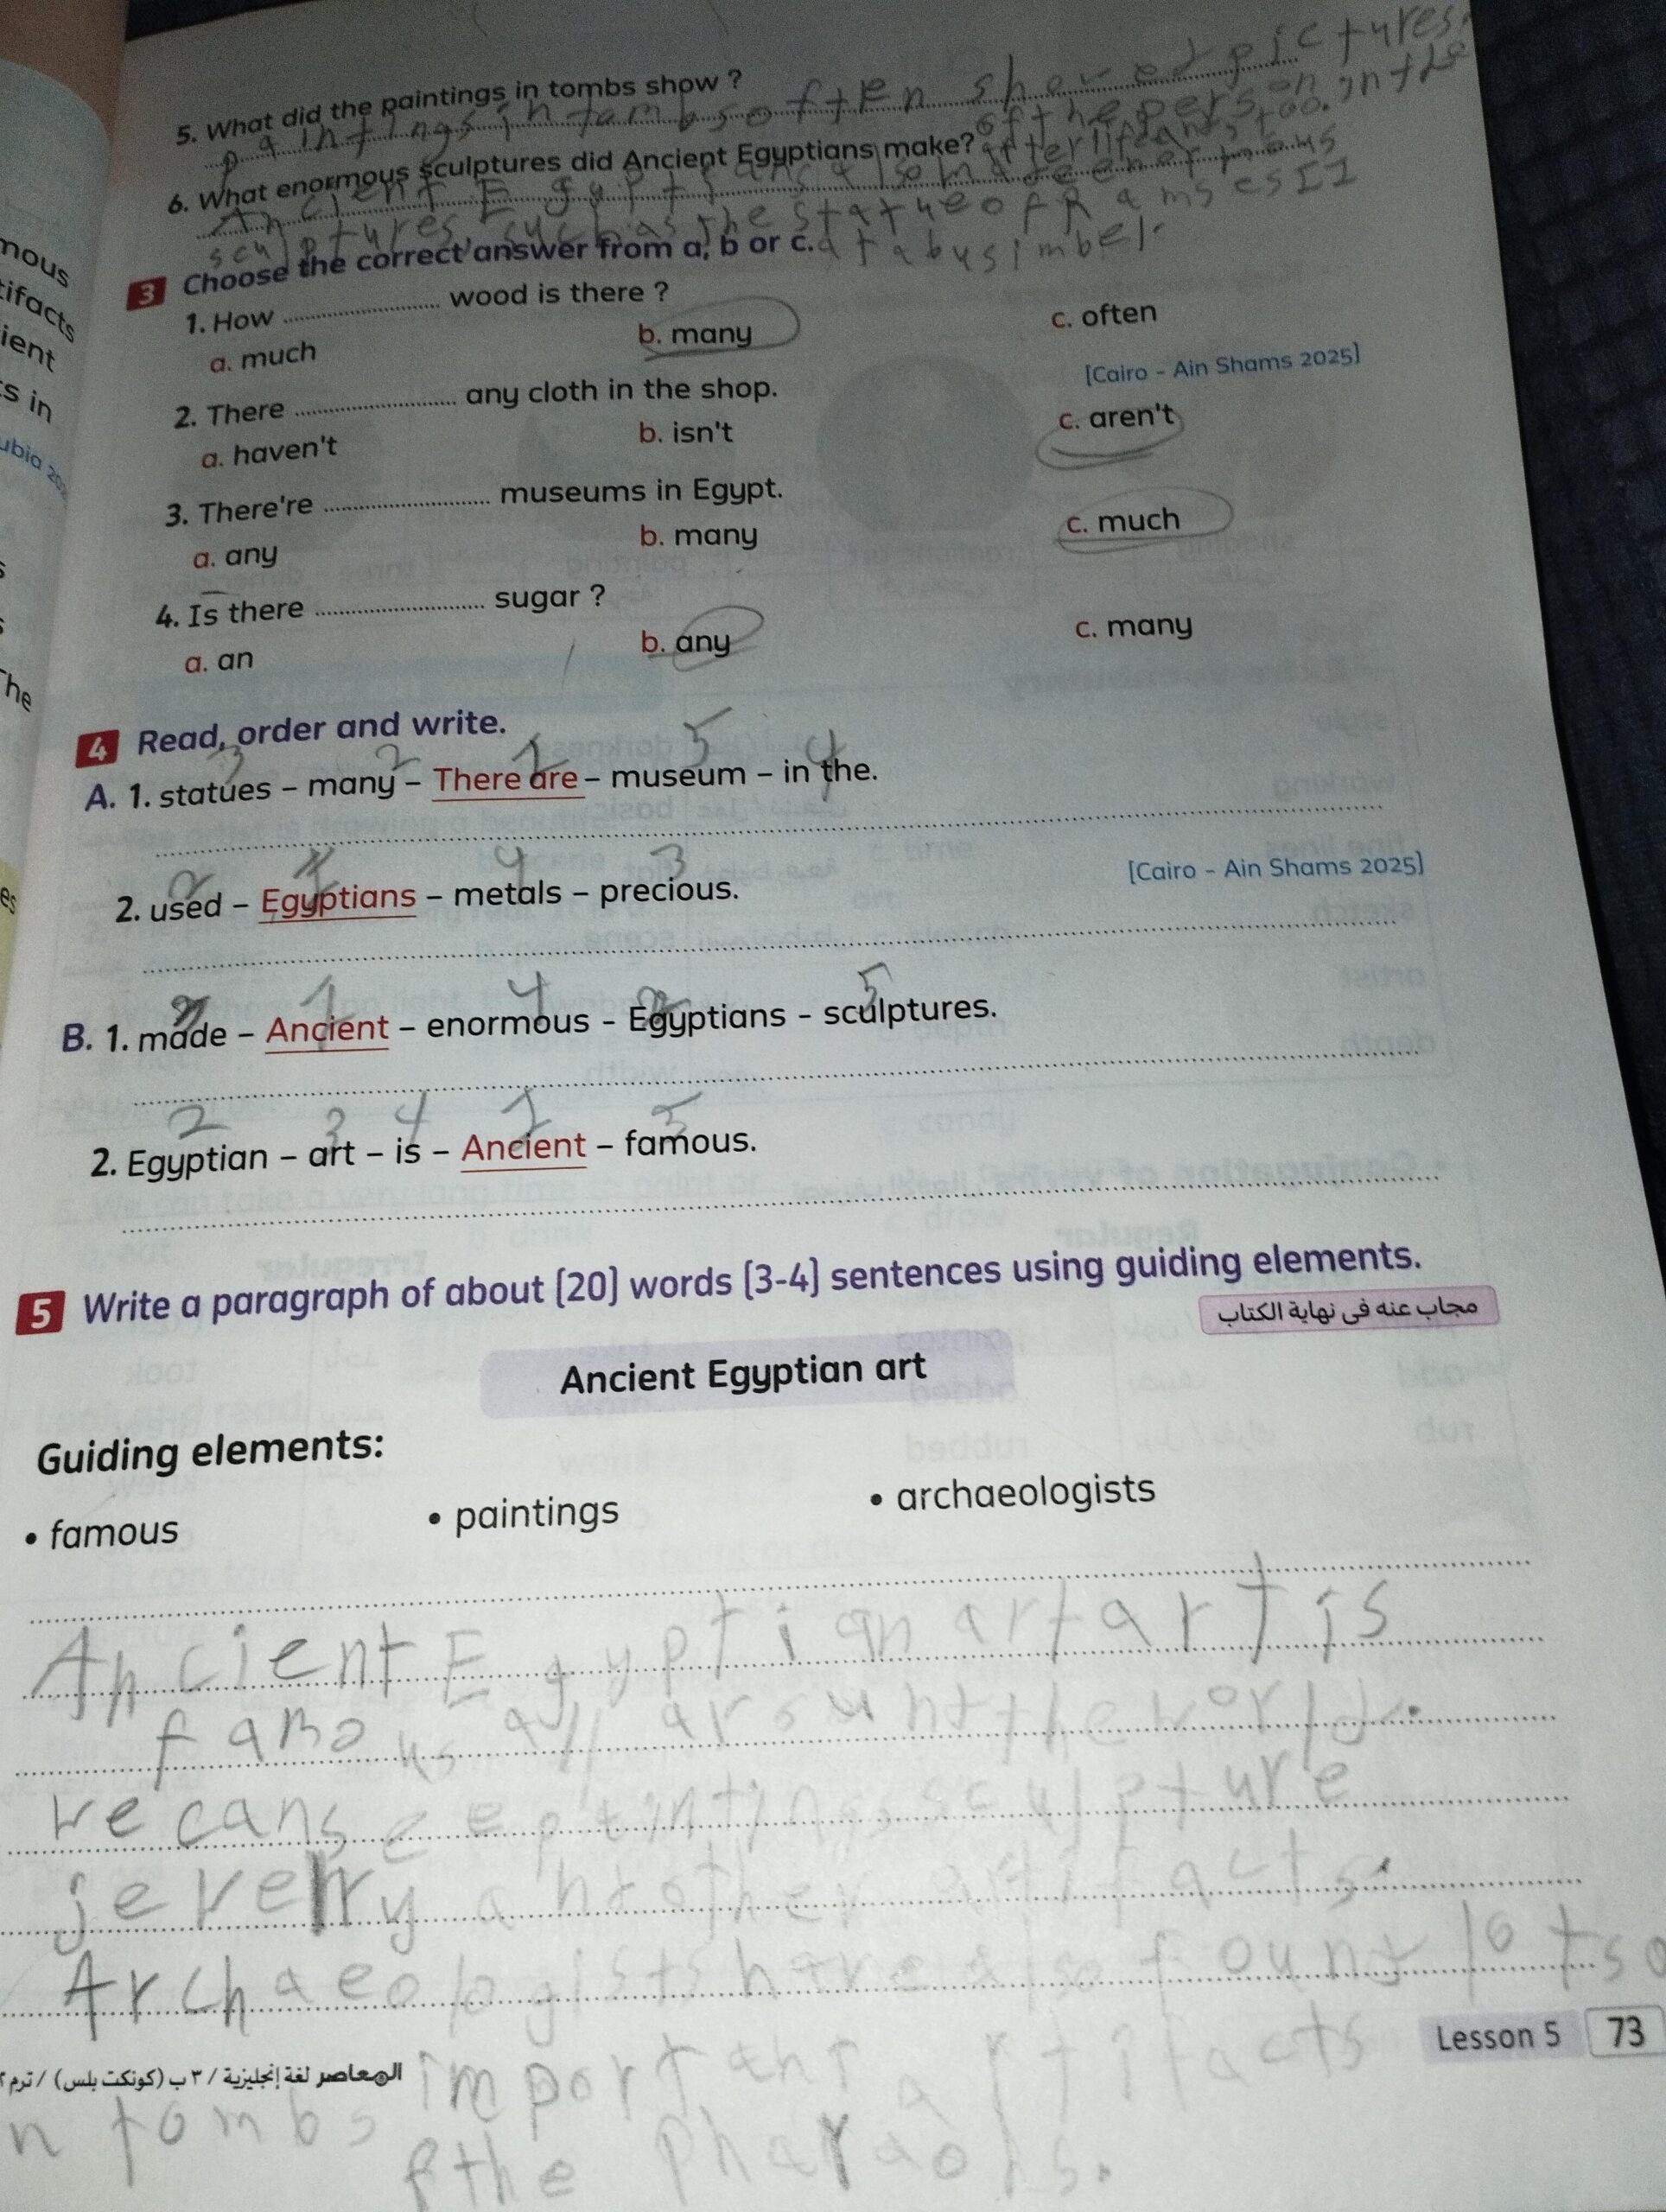 mous
tifacts
ient
s in
ubia 20
he
es
5. What did the paintings in tombs show ?
paintings in tombs often showed pictures
of the person in the
afterlife and stoo.
6. What enormous sculptures did Ancient Egyptians make?
Ancient Egyptians also made enormous
sculptures, such as the statue of Ramses II
at abusimbel.
3 Choose the correct answer from a, b or c.
1. How .................... wood is there ?
a. much b. many c. often
[Cairo - Ain Shams 2025]
2. There .................... any cloth in the shop.
a. haven't b. isn't c. aren't
3. There're .................... museums in Egypt.
a. any b. many c. much
4. Is there .................... sugar ?
a. an b. any c. many
4 Read, order and write.
3 2 1 5 4
A. 1. statues – many – There are – museum – in the.
2 1 4 3
2. used – Egyptians – metals – precious.
[Cairo - Ain Shams 2025]
1 4 5
B. 1. made – Ancient – enormous - Egyptians - sculptures.
2 3 4 1 5
2. Egyptian – art – is – Ancient – famous.
5 Write a paragraph of about (20) words (3-4) sentences using guiding elements.
مجاب عنه فى نهاية الكتاب
Ancient Egyptian art
Guiding elements:
• famous • paintings • archaeologists
Ancient Egyptian art art is
famous all arount the world.
we can see ptintings sculpture
jewelry an other artifacts.
Archaeologists have also found lots o
important artifacts
n tombs
f the pharaohs.
Lesson 5 73
المعاصر لغة إنجليزية / ٣ ب (كونكت بلس) / ترم ٢